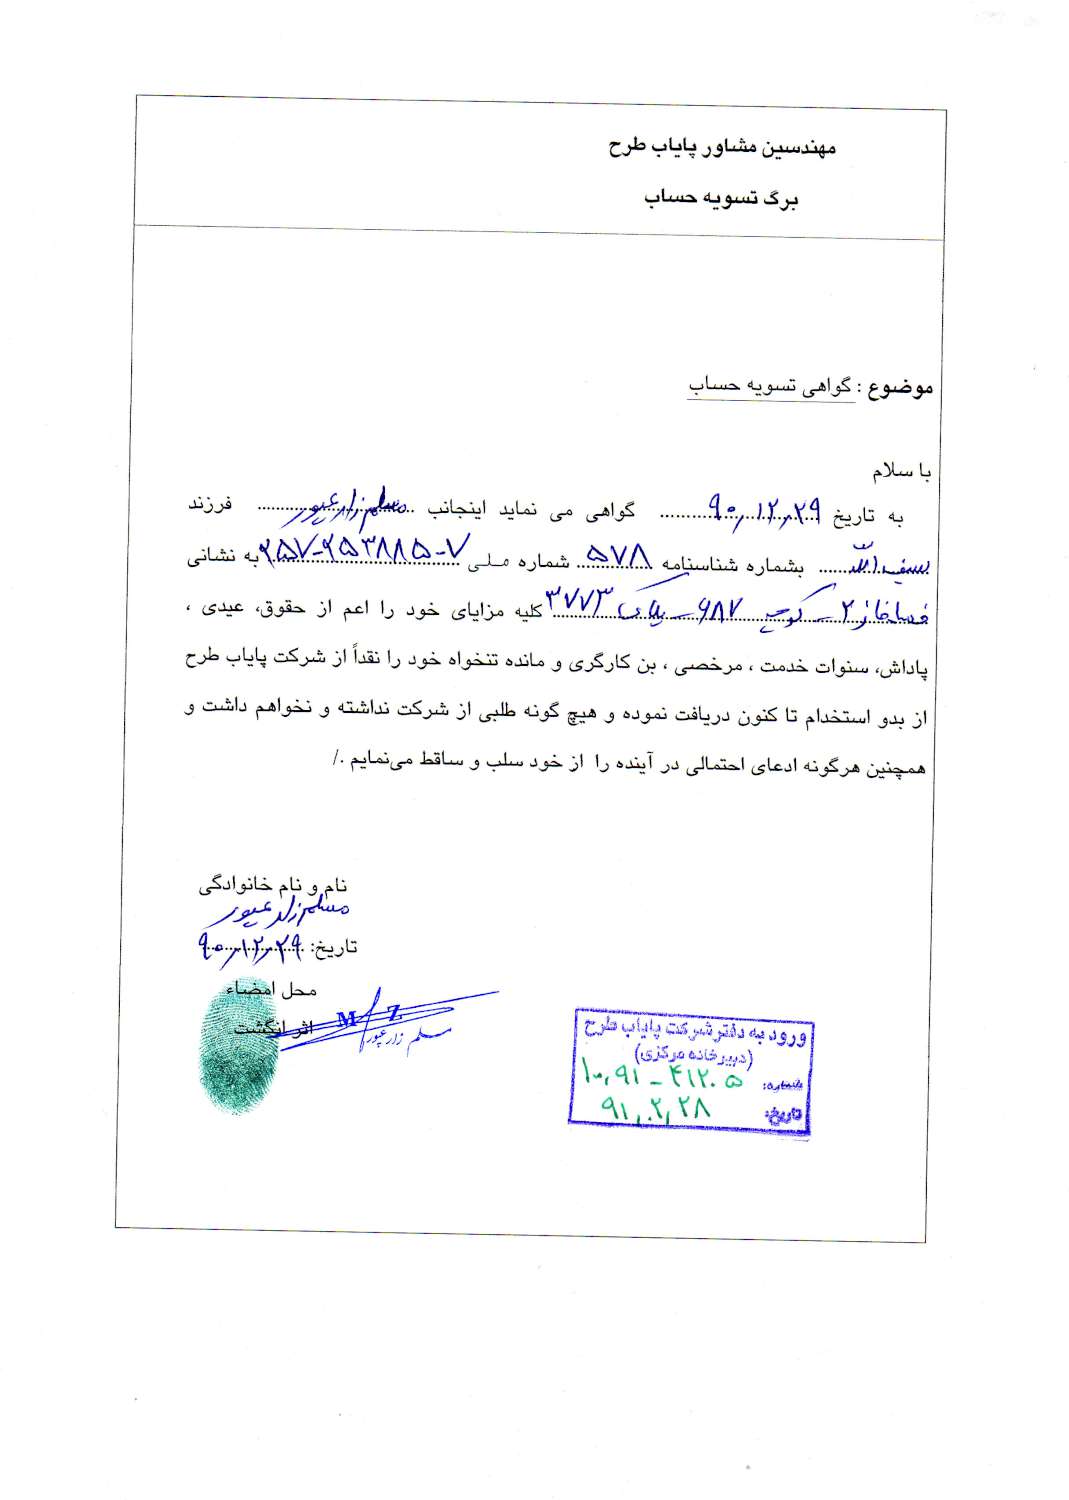 مهندسین مشاور پایاب طرح
برگ تسویه حساب
موضوع : گواهی تسویه حساب
با سلام
به تاریخ ۹۰،۱۲،۲۹ گواهی می نماید اینجانب مسلم زارع پور فرزند
سیف الله بشماره شناسنامه ۵۷۸ شماره ملی ۲۵۷-۲۵۳۸۸۵-۷ به نشانی
فساخاز ۲ - کوچه ۶۸۷ - پلاک ۳۷۷۳ کلیه مزایای خود را اعم از حقوق، عیدی ،
پاداش، سنوات خدمت ، مرخصی ، بن کارگری و مانده تنخواه خود را نقداً از شرکت پایاب طرح
از بدو استخدام تا کنون دریافت نموده و هیچ گونه طلبی از شرکت نداشته و نخواهم داشت و
همچنین هرگونه ادعای احتمالی در آینده را از خود سلب و ساقط می‌نمایم ./
نام و نام خانوادگی
مسلم زارع پور
تاریخ: ۹۰،۱۲،۲۹
محل امضاء
اثر انگشت
M Z
مسلم زارع پور
ورود به دفتر شرکت پایاب طرح
(دبیرخانه مرکزی)
شماره: ۱۰،۹۱ - ۴۱۲۰۵
تاریخ: ۹۱،۰۲،۲۸